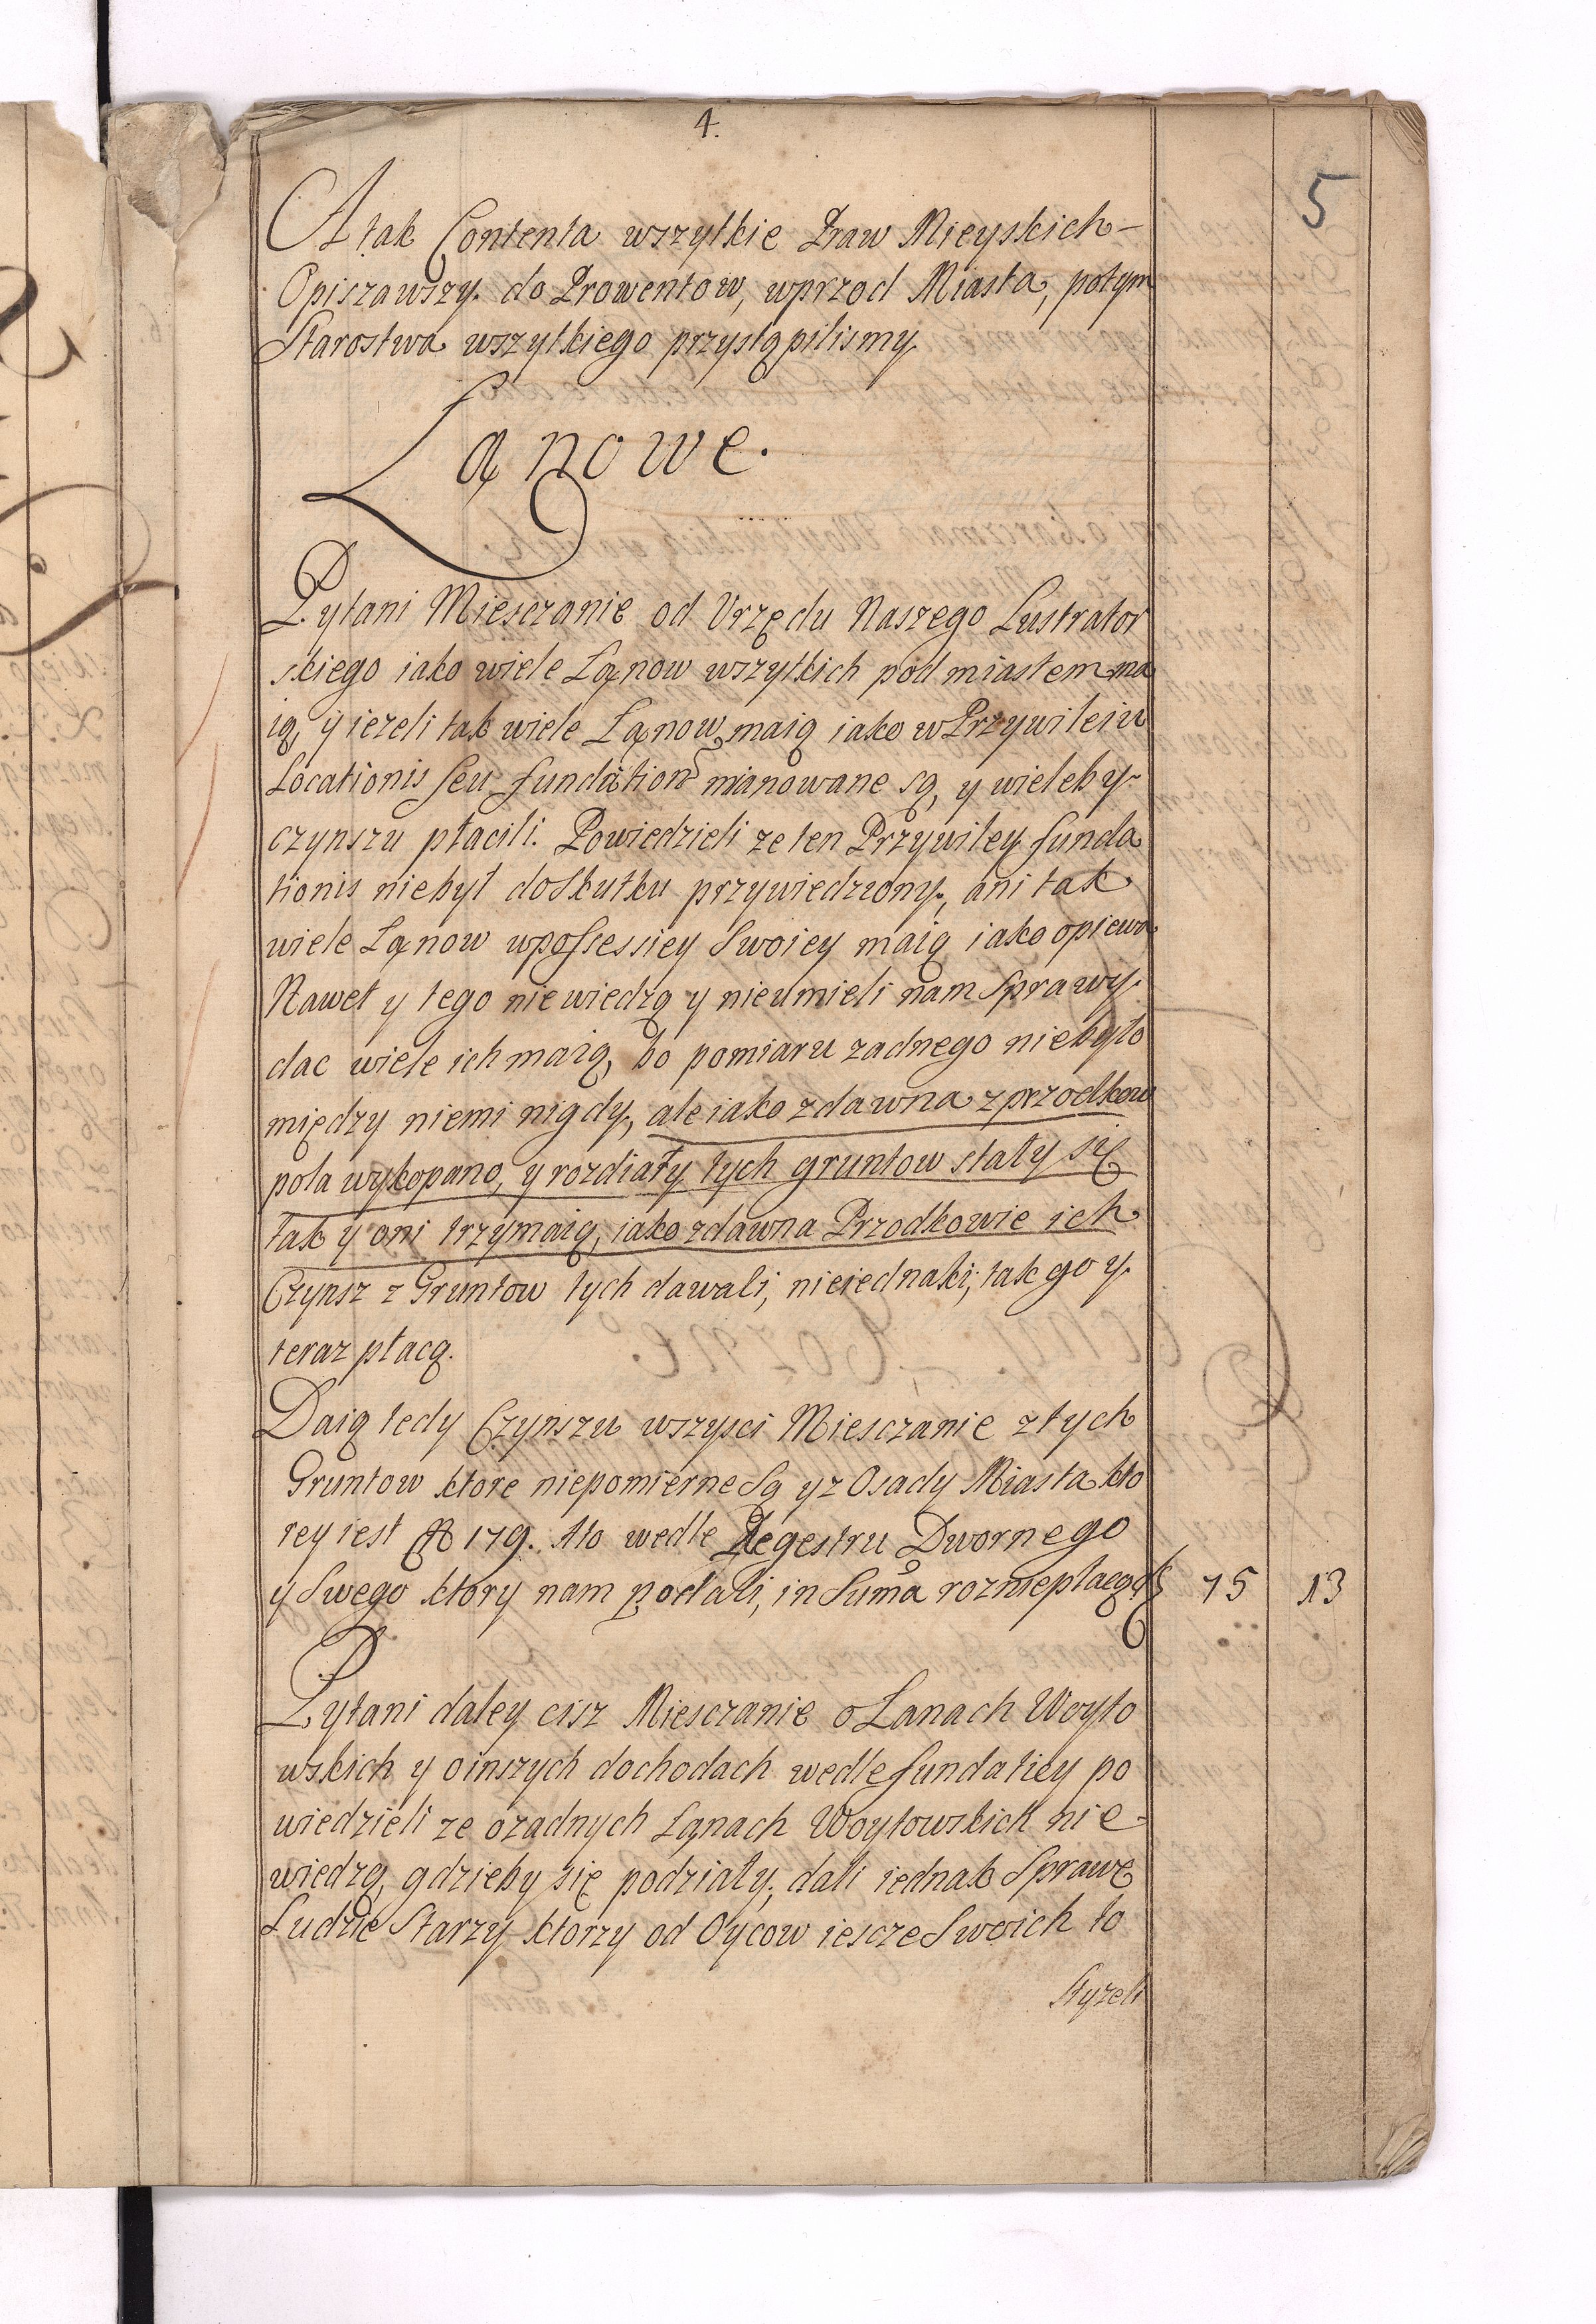 4.
5
A tak Contenta wszytkie Praw Mieyskich –
Opiszawszy. do Prowentow, wprzod Miasta, potym
Starostwa wszytkiego przystąpilismy
Łąnowe.
Pytani Miesczanie od Vrzędu Naszego Lustrator
skiego iako wiele Łąnow wszytkich pod miastem ma
ią, ÿ iezeli tak wiele Łąnow maią iako w Przywileiu
Locationis seu fundation mianowane są, y wieleby
czynszu płacili. Powiedzieli ze ten Przywiley funda
tionis niebył do Skutku przywiedziony, ani tak
wiele Łąnow wpossessiey Swoiey maią iako opiewa
Nawet y tego niewiedzą y nieumieli nam Sprawy
dac wiele ich maią, bo pomiaru zadnego niebyło
między niemi nigdy, ale iako zdawna z przodkow
pola wykopano, y rozdiały tych gruntow stały się
tak y oni trzymaią, iako zdawna Przodkowie ich
Czynsz z Gruntow tych dawali, nieiednaki, tak go y
teraz płacą.
Daią tedy Czynszu wszysci Miesczanie z tych
Gruntow ktore niepomierne Są y z Osady Miasta kto
rey iest 179. Ato wedle Regestru Dwornego
y Swego ktory nam podali, in Suma̅ roznie płacą 75 13
Pytani daley cisz Miesczanie o Łanach Woyto
wskich y o inszych dochodach wedle fundatiey po
wiedzieli ze ozadnych Łąnach Woytowskich nie-
wiedzą, gdzieby się podziały, dali iednak Sprawę
Ludzie Starzy ktorzy od Oycow iescze Swoich to
Słyzeli